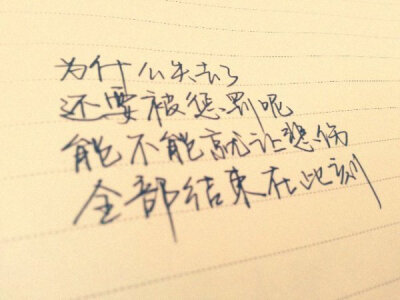 为什么失去了
还要被惩罚呢
能不能就让悲伤
全部结束在此刻